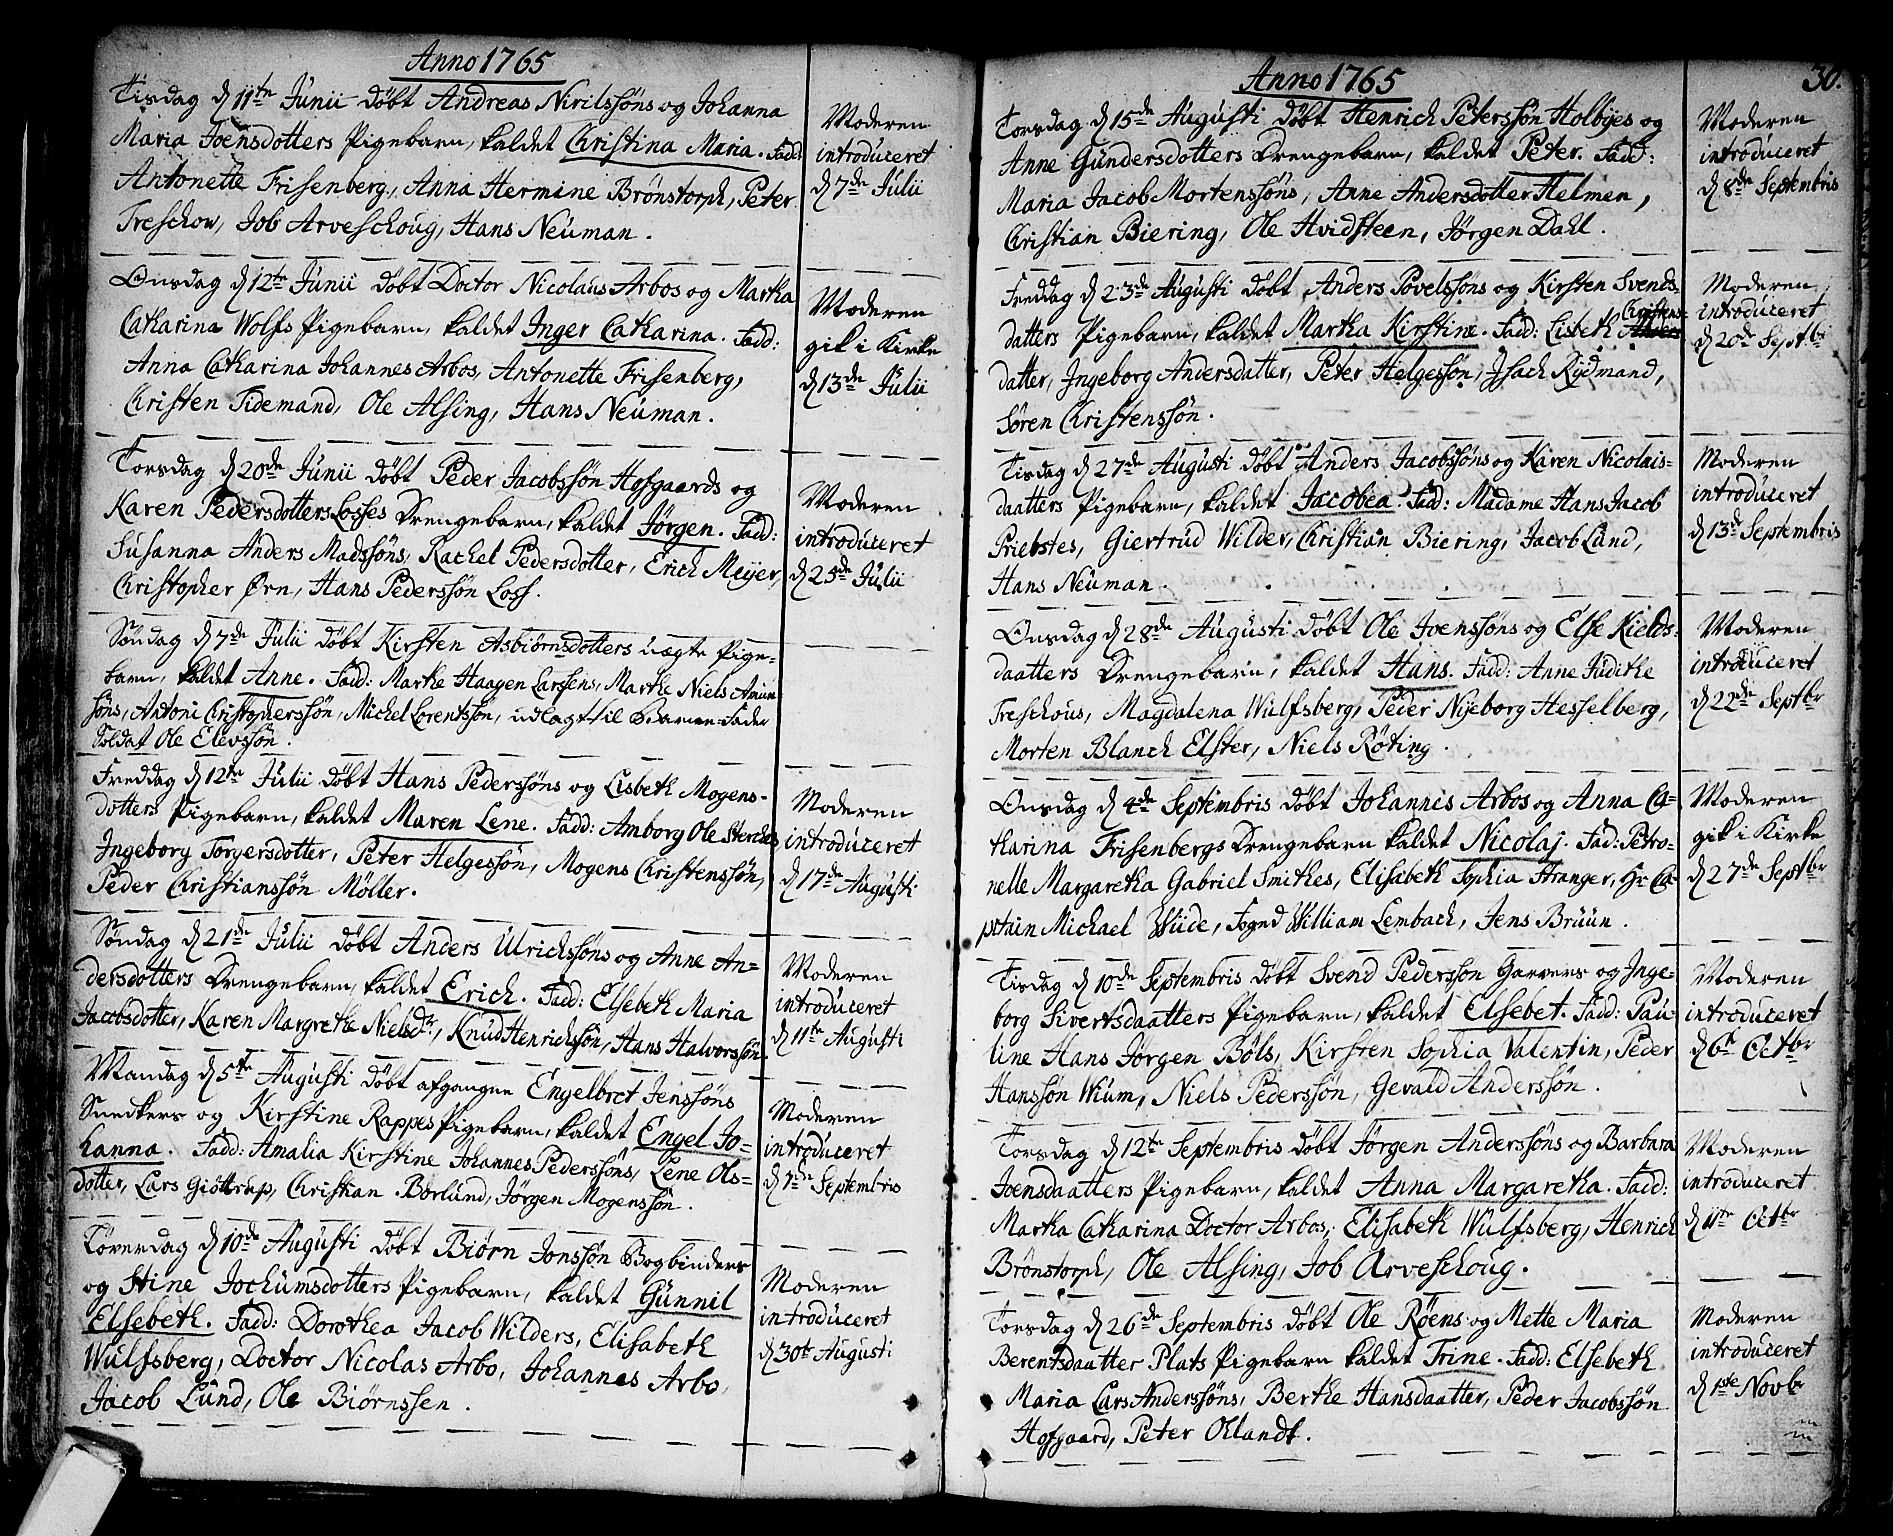 Anno 1765
Tisdag d 11te Junii døbt Andreas Nirilssøns og Johanna
Maria Joensdotters Pigebarn, kaldet Christina Maria. Fadd:
Antonette Frisenberg, Anna Hermine Brønstorph, Peter
Treschow, Job Arveschoug, Hans Neuman.
Moderen
introduceret
d 7de Julii
Onsdag d 12te Junii døbt Doctor Nicolaus Arbos og Martha
Catharina Wolfs Pigebarn, kaldet Inger Catharina. Fadd:
Anna Catharina Johannes Arbos, Antonette Frisenberg,
Christen Tidemand, Ole Alsing, Hans Neuman.
Moderen
gik i Kirke
d 13de Julii
Torsdag d 20de Junii døbt Peder Jacobssøn Hofgaards og
Karen Pedersdotters Losses Drengebarn, kaldet Jørgen. Fadd:
Susanna Anders Madssøns, Rachel Pedersdotter, Erich Meyer,
Christopher Ørn, Hans Pederssøn Loss.
Moderen
introduceret
d 25de Julii
Søndag d 7de Julii døbt Kirsten Asbiørnsdotters uægte Pige-
barn, kaldet Anne. Fadd: Marthe Haagen Larsens, Marthe Niels Amun-
søns, Antoni Christopherssøn, Michel Lorentsøn, udlagt til Barne-Fader
Soldat Ole Elevssøn.
Freddag d 12te Julii døbt Hans Pederssøns og Lisbeth Mogens-
dotters Pigebarn, kaldet Maren Lene. Fadd: Amborg Ole Sterches,
Ingeborg Torgersdotter, Peter Helgessøn, Mogens Christenssøn,
Peder Christianssøn Møller.
Moderen
introduceret
d 17de Augusti
Søndag d 21de Julii døbt Anders Ulrichssøns og Anne An-
dersdotters Drengebarn, kaldet Erich. Fadd: Elsebeth Maria
Jacobsdotter, Karen Margrethe Nielsdtr, Knud Henrichssøn, Hans Halvorssøn.
Moderen
introduceret
d 11te Augusti
Mandag d 5te Augusti døbt afgangne Engelbret Jenssøns
Snedkers og Kirstine Rappes Pigebarn, kaldet Engel Jo-
hanna. Fadd: Amalia Kirstine Johannes Pederssøns, Lene Ols-
dotter, Lars Giøttrup, Christian Borlund, Jørgen Mogenssøn.
Moderen
introduceret
d 7de Septembris
Løverdag d 10de Augusti døbt Biørn Jonssøn Bogbinders
og Stine Jochumsdotters Pigebarn, kaldet Gunnil
Elsebeth. Fadd: Dorothea Jacob Wilders, Elisabeth
Wulfsberg, Doctor Nicolas Arbo, Johannes Arbo,
Jacob Lund, Ole Biørnssen.
Moderen
introduceret
d 30t Augusti
30.
Anno 1765
Torsdag d 15de Augusti døbt Henrich Peterssøn Holbyes og
Anne Gundersdotters Drengebarn, kaldet Peter. Fadd:
Maria Jacob Mortenssøns, Anne Andersdotter Helmen,
Christian Biering, Ole Hvidsteen, Jørgen Dahl.
Moderen
introduceret
d 8de Septembris
Freddag d 23de Augusti døbt Anders Povelssøns og Kirsten Svends-
datters Pigebarn, kaldet Martha Kirstine. Fadd: Lisbeth Christens-
datter, Ingeborg Andersdatter, Peter Helgessøn, Isach Rydmand,
Søren Christenssøn.
Moderen
introduceret
d 20de Septbr
Tisdag d 27de Augusti døbt Anders Jacobssøns og Karen Nicolais-
daatters Pigebarn, kaldet Jacobea. Fadd: Madame Hans Jacob
Priebstes, Giertrud Wilder, Christian Biering, Jacob Lund,
Hans Neuman.
Moderen
introduceret
d 13de Septembris
Onsdag d 28de Augusti døbt Ole Joenssøns og Else Kields-
daatters Drengebarn, kaldet Hans. Fadd: Anne Judithe
Treschous, Magdalena Wulfsberg, Peder Nyeborg Hesselberg,
Morten Blanch Elster, Niels Røting.
Moderen
introduceret
d 22de Septbr
Onsdag d 4de Septembris døbt Johannis Arbos og Anna Ca-
tharina Frisenbergs Drengebarn kaldet Nicolaj. Fad: Petro-
nelle Margaretha Gabriel Smithes, Elisabeth Sophia Stranger, Hr Ca-
ptain Michael Wiide, Fogned William Lembach, Jens Bruun.
Moderen
gik i Kirke
d 27de Septbr
Tisdag d 10de Septembris døbt Svend Pedersson Garvers og Inge-
borg Sivertsdaatters Pigebarn, kaldet Elsebet. Fadd: Pau-
line Hans Jørgen Bøls, Kirsten Sophia Valentin, Peder
Hanssøn Wium, Niels Pederssøn, Gevald Anderssøn.
Moderen
introduceret
d 6te Octbr
Torsdag d 12te Septembris døbt Jørgen Anderssøns og Barbara
Joensdaatters Pigebarn, kaldet Anna Margaretha. Fadd:
Martha Catharina Doctor Arbos, Elisabeth Wulfsberg, Henrich
Brønstorph, Ole Alsing, Job Arveschoug.
Moderen
introduceret
d 11te Octbr
Torsdag d 26de Septembris døbt Ole Røens og Mette Maria
Berentsdaatter Plats Pigebarn kaldet Trine. Fadd: Elsebeth
Maria Lars Anderssøns, Berthe Hansdaatter, Peder Jacobssøn
Hofgaard, Peter Olandt.
Moderen
introduceret
d 1ste Novbr